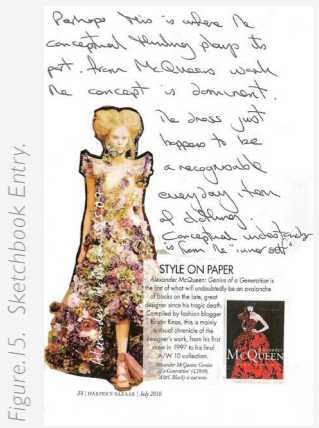 Figure.15. Sketchbook Entry.
Perhaps this is where the
conceptual thinking plays its
part. from McQueens work
the concept is dominent.
The dress just
happens to be
a recognisable
everyday item
of clothing.
Conceptual understandg
is from the "inner self"
STYLE ON PAPER
Alexander McQueen: Genius of a Generation is
the first of what will undoubtedly be an avalanche
of books on the late, great
designer since his tragic death.
Compiled by fashion blogger
Kristin Knox, this is mainly
a visual chronicle of the
designer's work, from his first
show in 1997 to his final
A/W 10 collection.
'Alexander McQueen: Genius
of a Generation' (£19.99,
A&C Black) is out now.
ALEXANDER
MCQUEEN
34 | HARPER'S BAZAAR | July 2010